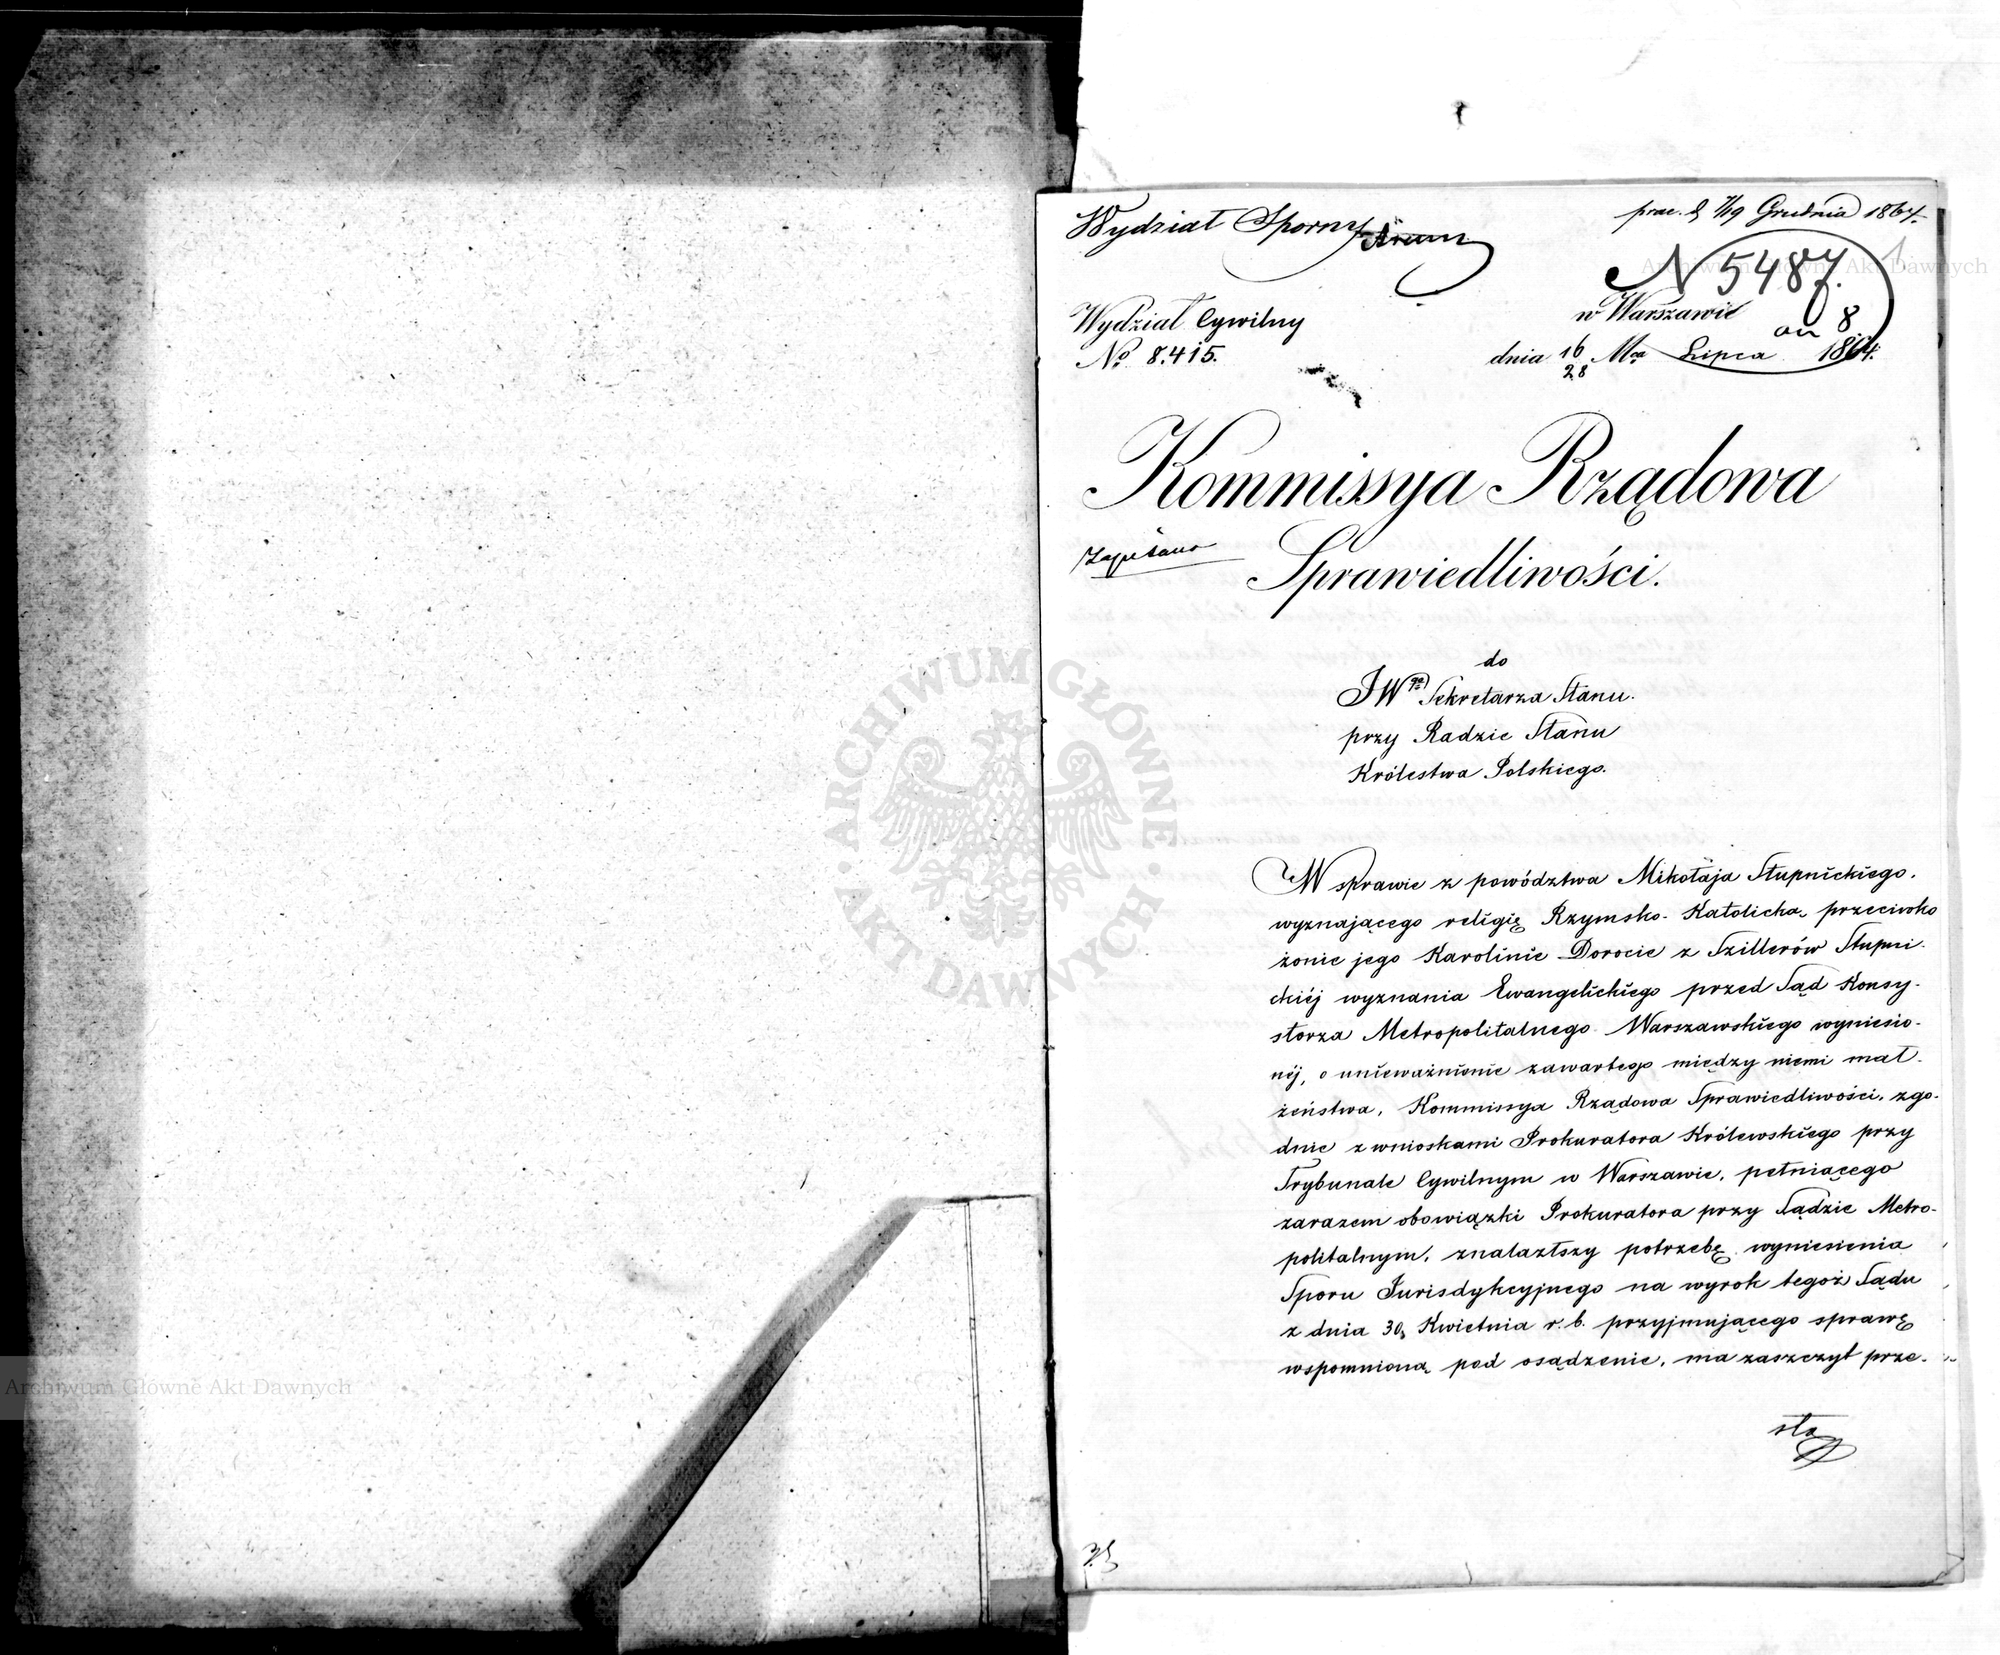 Wydział Sporny
prac. d 7/19 Grudnia 1864.
N 5487.
w Warszawie
an 8
Wydział Cywilny
No 8.415.
dnia 16/28 Mca Lipca 1864.
Kommissya Rządowa
Zapisano
Sprawiedliwości.
do
JWgo Sekretarza Stanu
przy Radzie Stanu
Królestwa Polskiego.
W sprawie z powództwa Mikołaja Stupnickiego,
wyznającego religię Rzymsko-Katolicką, przeciwko
żonie jego Karolinie Dorocie z Szillerów Stupni-
ckiéj wyznania Ewangelickiego przed Sąd Konsy-
storza Metropolitalnego Warszawskiego wyniesio-
néj, o unieważnienie zawartego między niemi mał-
żeństwa, Kommissya Rządowa Sprawiedliwości, zgo-
dnie z wnioskami Prokuratora Królewskiego przy
Trybunale Cywilnym w Warszawie, pełniącego
zarazem obowiązki Prokuratora przy Sądzie Metro-
politalnym, znalazłszy potrzebę wyniesienia
Sporu Jurisdykcyjnego na wyrok tegoż Sądu
z dnia 30 Kwietnia r. b. przyjmującego sprawę
wspomnioną pod osądzenie, ma zaszczyt prze-
sła
ARCHIWUM GŁÓWNE AKT DAWNYCH
Archiwum Główne Akt Dawnych
Archiwum Główne Akt Dawnych